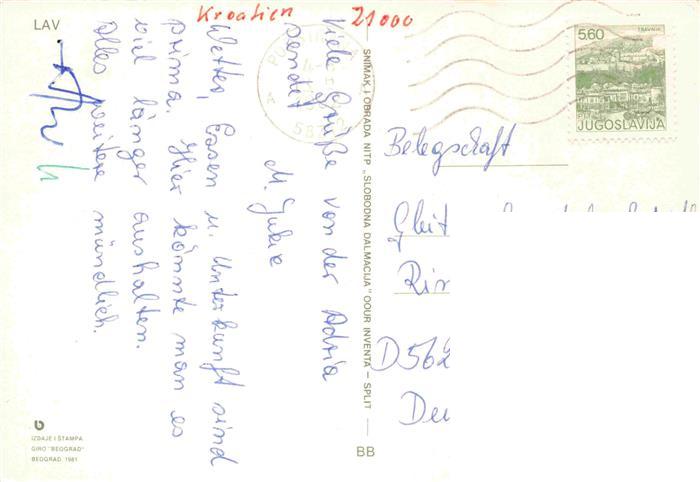 Kroatien 21000
LAV
Viele Grüße von der Adria
sendet
M.
Wetter, Essen u. Unterkunft sind
prima. Hier könnte man es
viel länger aushalten.
Alles weitere mündlich.
IZDAJE I ŠTAMPA
GIRO "BEOGRAD"
BEOGRAD 1981.
SNIMAK I OBRADA NITP „SLOBODNA DALMACIJA" OOUR INVENTA – SPLIT
BB
5.60
TRAVNIK
JUGOSLAVIJA
Belegschaft
D 562